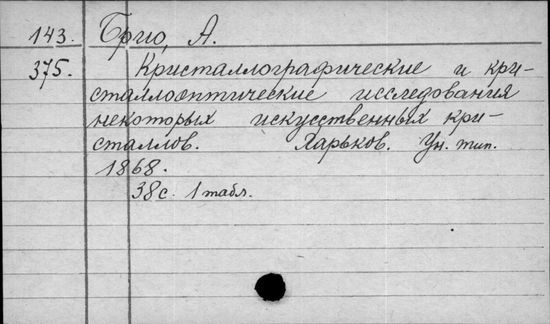 143. Брио, А.
375. Кристаллографические и кри-
сталлооптические исследования
некоторых искусственных кри-
сталлов. Харьков. Ун. тип.
1868.
38с. 1 табл.